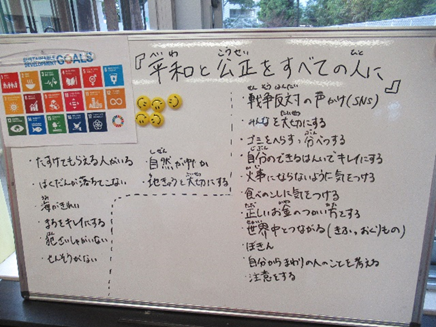 SUSTAINABLE DEVELOPMENT GOALS
『平和と公正をすべての人に』
へいわ こうせい ひと
・たすけてもらえる人がいる
・ばくだんが落ちてこない
・海がきれい
・まちをキレイにする
・犯ざいしゃがいない
・せんそうがない
しぜん
・自然がゆたか
・地きゅうを大切にする
せんそうはんたい
・戦争反対の声かけ(SNS)
・みんなを大切にする
・ゴミをへらす、分べつする
・自分のできるはんいでキレイにする
・火事にならないように気をつける
・食べのこしに気をつける
・正しいお金のつかい方をする
・世界中とつながる(きふ、おくりもの)
・ぼきん
・自分からまわりの人のことを考える
・注意をする